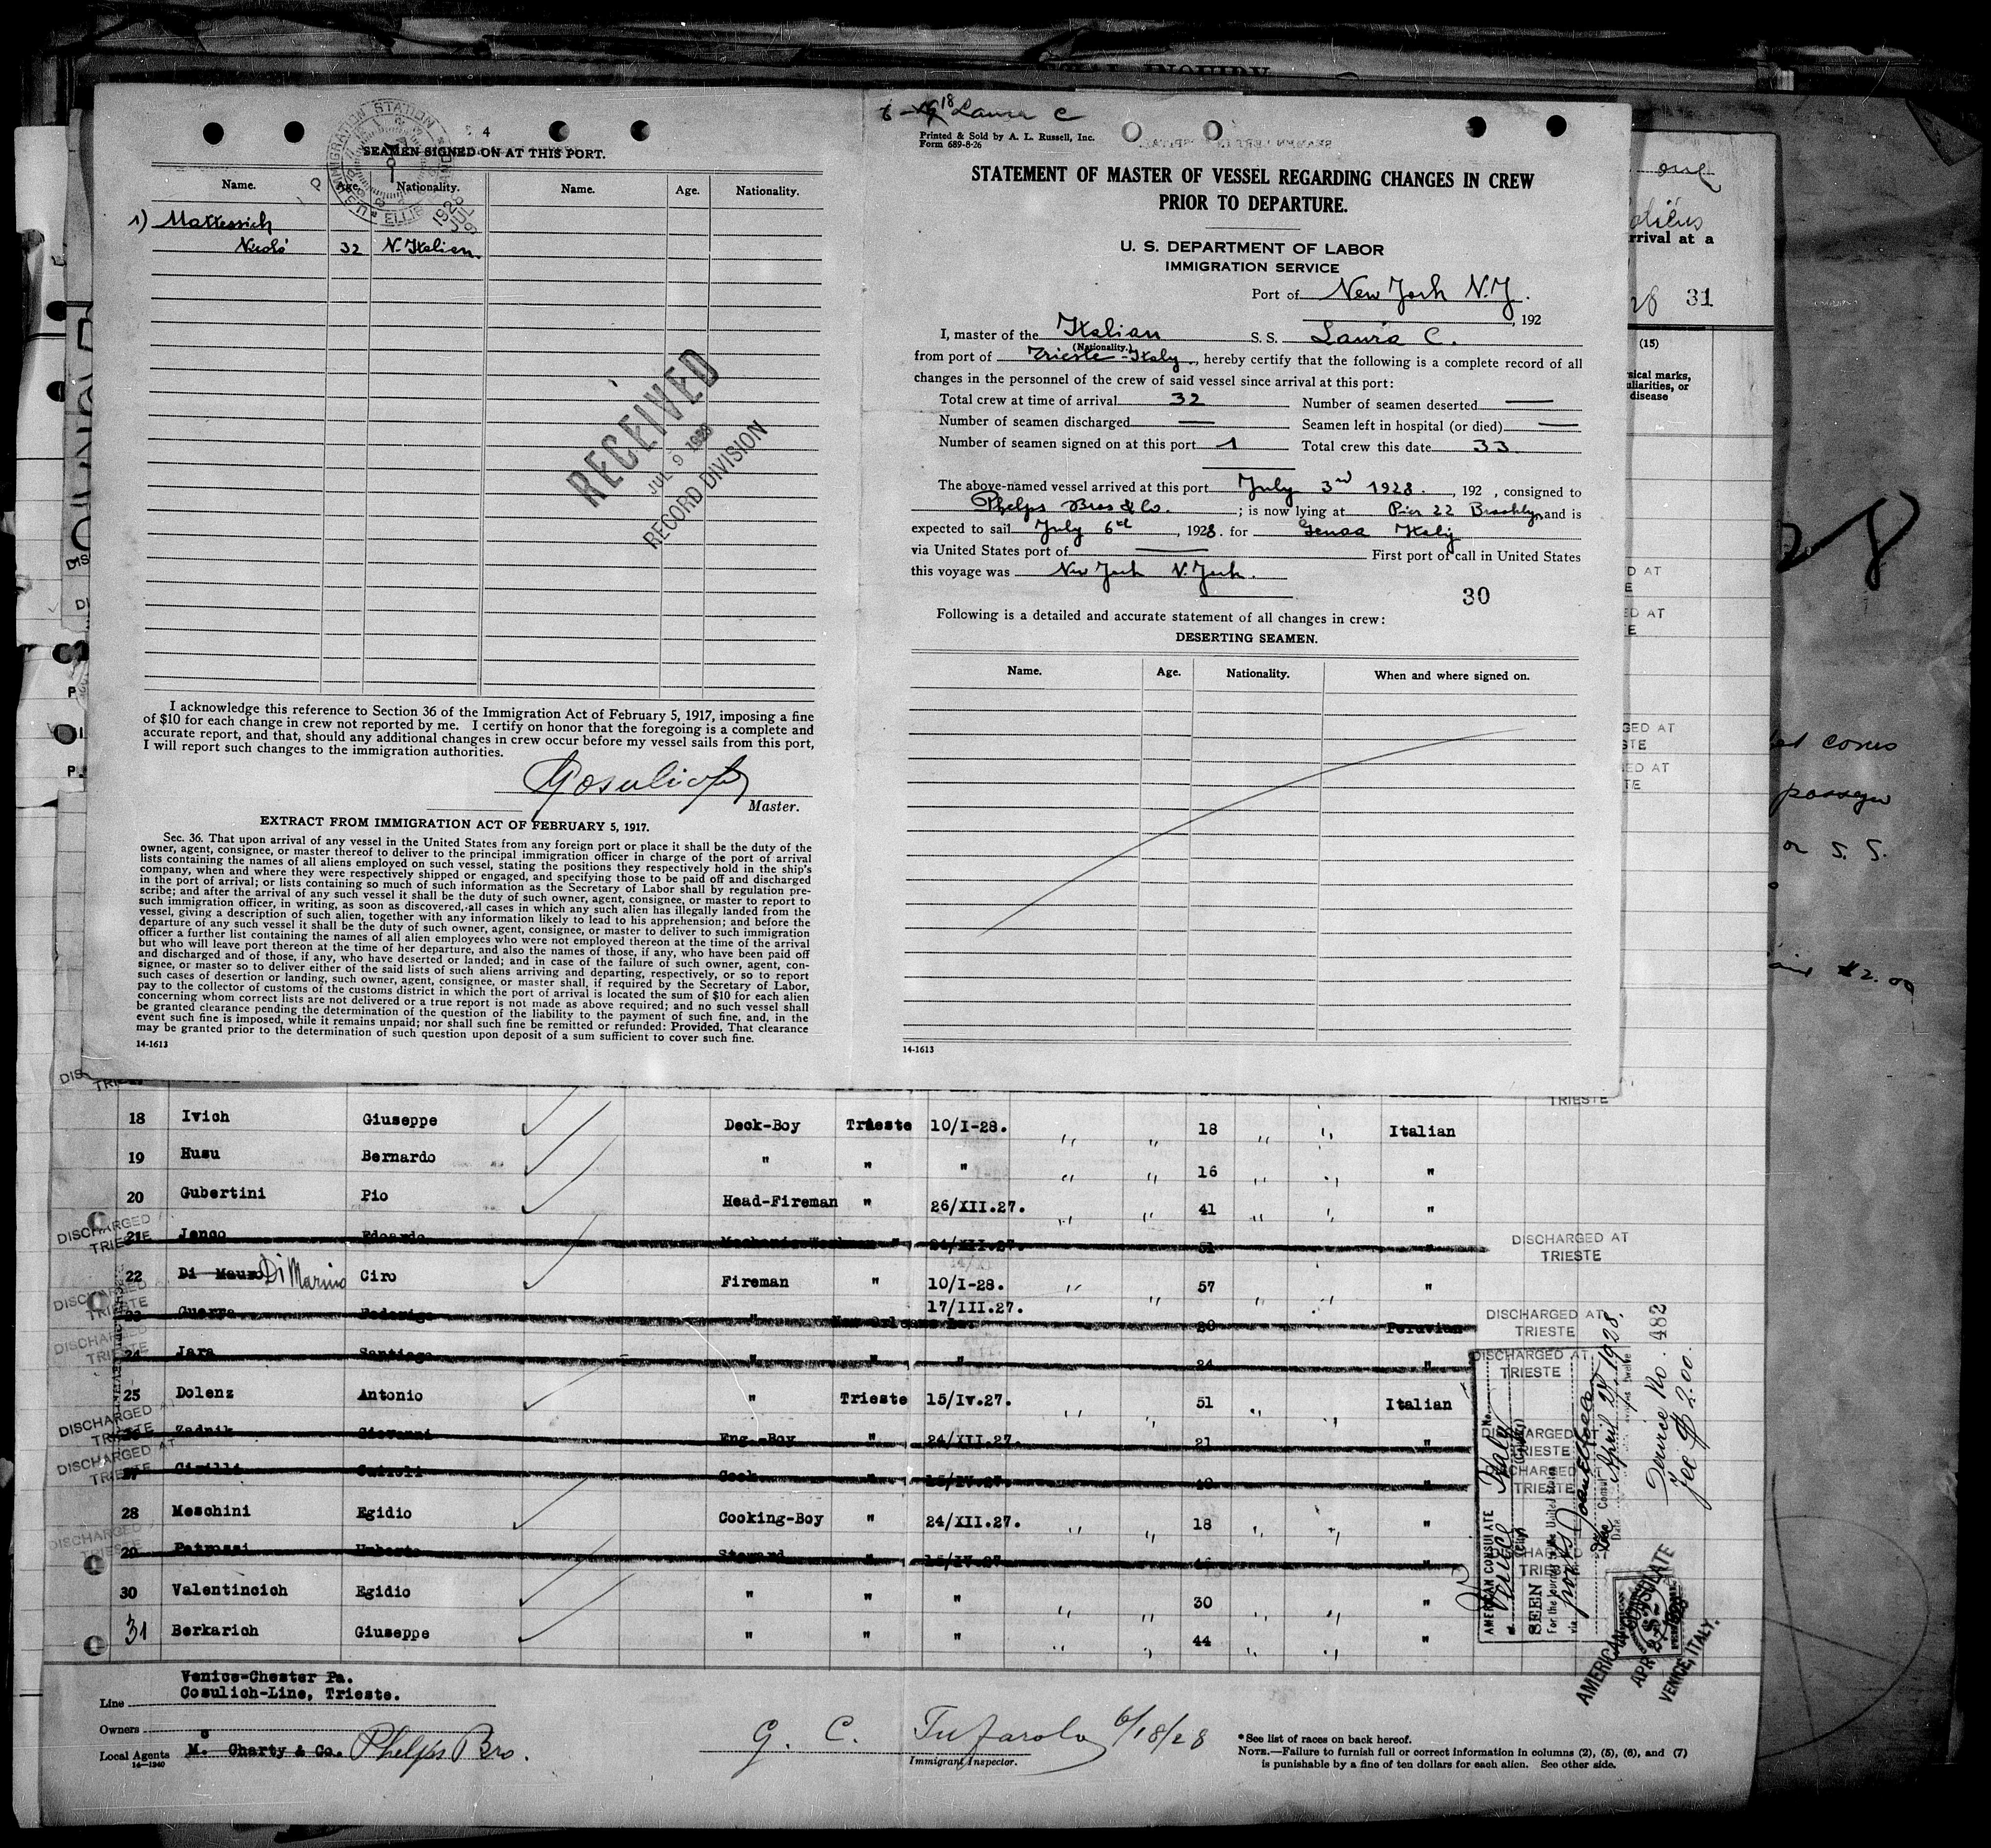 SEAMEN SIGNED ON AT THIS PORT.
Name. Age. Nationality. Name. Age. Nationality.
1) Mattessich
Nicolò 32 N. Italian.
RECEIVED
JUL 9 1928
RECORD DIVISION
I acknowledge this reference to Section 36 of the Immigration Act of February 5, 1917, imposing a fine
of $10 for each change in crew not reported by me. I certify on honor that the foregoing is a complete and
accurate report, and that, should any additional changes in crew occur before my vessel sails from this port,
I will report such changes to the immigration authorities.
Master.
EXTRACT FROM IMMIGRATION ACT OF FEBRUARY 5, 1917.
Sec. 36. That upon arrival of any vessel in the United States from any foreign port or place it shall be the duty of the
owner, agent, consignee, or master thereof to deliver to the principal immigration officer in charge of the port of arrival
lists containing the names of all aliens employed on such vessel, stating the positions they respectively hold in the ship's
company, when and where they were respectively shipped or engaged, and specifying those to be paid off and discharged
in the port of arrival; or lists containing so much of such information as the Secretary of Labor shall by regulation pre-
scribe; and after the arrival of any such vessel it shall be the duty of such owner, agent, consignee, or master to report to
such immigration officer, in writing, as soon as discovered, all cases in which any such alien has illegally landed from the
vessel, giving a description of such alien, together with any information likely to lead to his apprehension; and before the
departure of any such vessel it shall be the duty of such owner, agent, consignee, or master to deliver to such immigration
officer a further list containing the names of all alien employees who were not employed thereon at the time of the arrival
but who will leave port thereon at the time of her departure, and also the names of those, if any, who have been paid off
and discharged and of those, if any, who have deserted or landed; and in case of the failure of such owner, agent, con-
signee, or master so to deliver either of the said lists of such aliens arriving and departing, respectively, or so to report
such cases of desertion or landing, such owner, agent, consignee, or master shall, if required by the Secretary of Labor,
pay to the collector of customs of the customs district in which the port of arrival is located the sum of $10 for each alien
concerning whom correct lists are not delivered or a true report is not made as above required; and no such vessel shall
be granted clearance pending the determination of the question of the liability to the payment of such fine, and, in the
event such fine is imposed, while it remains unpaid; nor shall such fine be remitted or refunded: Provided, That clearance
may be granted prior to the determination of such question upon deposit of a sum sufficient to cover such fine.
14-1613
18 Laura C
Printed & Sold by A. L. Russell, Inc.
Form 689-8-26
STATEMENT OF MASTER OF VESSEL REGARDING CHANGES IN CREW
PRIOR TO DEPARTURE.
U. S. DEPARTMENT OF LABOR
IMMIGRATION SERVICE
Port of New York N.Y.
, 192
I, master of the Italian S. S. Laura C.
(Nationality.)
from port of Trieste-Italy, hereby certify that the following is a complete record of all
changes in the personnel of the crew of said vessel since arrival at this port:
Total crew at time of arrival 32 Number of seamen deserted —
Number of seamen discharged — Seamen left in hospital (or died) —
Number of seamen signed on at this port 1 Total crew this date 33
The above-named vessel arrived at this port July 3rd 1928., 192 , consigned to
Phelps Bros & Co.; is now lying at Pier 22 Brooklyn and is
expected to sail July 6th, 1928. for Genoa Italy
via United States port of — First port of call in United States
this voyage was New York N. York.
30
Following is a detailed and accurate statement of all changes in crew:
DESERTING SEAMEN.
Name. Age. Nationality. When and where signed on.
14-1613
rrival at a
31
(15)
sical marks,
uliarities, or
disease
passgr
or S. S.
$2.00
TRIESTE
18 Ivich Giuseppe Deck-Boy Trieste 10/I-28. " " 18 " " Italian
19 Husu Bernardo " " " " " 16 " " "
20 Gubertini Pio Head-Fireman " 26/XII.27. " " 41 " " "
DISCHARGED AT TRIESTE
21 Jenco Edoardo " 24/XII.27. 51 "
22 Di Mauro Di Marino Ciro Fireman " 10/I-28. " " 57 " " "
23 Guerra Federigo " New Orleans La. 17/III.27. 20 Peruvian
24 Jara Santiago " " " 24 "
25 Dolenz Antonio " Trieste 15/Iv.27. " " 51 " " Italian
26 Zadnik Giovanni Eng.-Boy " 24/XII.27. 21 "
27 Cirilli Cook " 15/IV.27. "
28 Meschini Egidio Cooking-Boy " 24/XII.27. " " 18 " " "
29 Patrossi Umberto Steward " 15/IV.27 "
30 Valentincich Egidio " " " " " 30 " " "
31 Berkarich Giuseppe " " " " " 44 " " "
DISCHARGED AT
TRIESTE
DISCHARGED AT
TRIESTE
DISCHARGED AT
TRIESTE
AMERICAN CONSULATE
Venice Italy
SEEN
For the journey to the United States
April 27 1928.
Service No. 482
Fee $2.00.
AMERICAN CONSULATE
APR 27 1928
VENICE, ITALY.
Venice-Chester Pa.
Line Cosulich-Line, Trieste.
Owners
Local Agents M. Charty & Co. Phelps Bro.
14—1240
G. C. Tufarolo 6/18/28
Immigrant Inspector.
*See list of races on back hereof.
NOTE.—Failure to furnish full or correct information in columns (2), (5), (6), and (7)
is punishable by a fine of ten dollars for each alien. See other side.